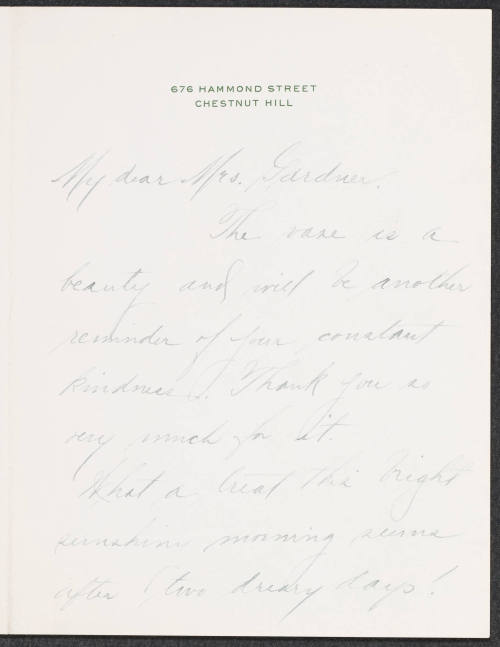 676 HAMMOND STREET
CHESTNUT HILL
My dear Mrs. Gardner.
The vase is a
beauty and will be another
reminder of your constant
kindness. Thank you so
very much for it.
What a treat this bright
sunshin morning seems
after two dreary days!